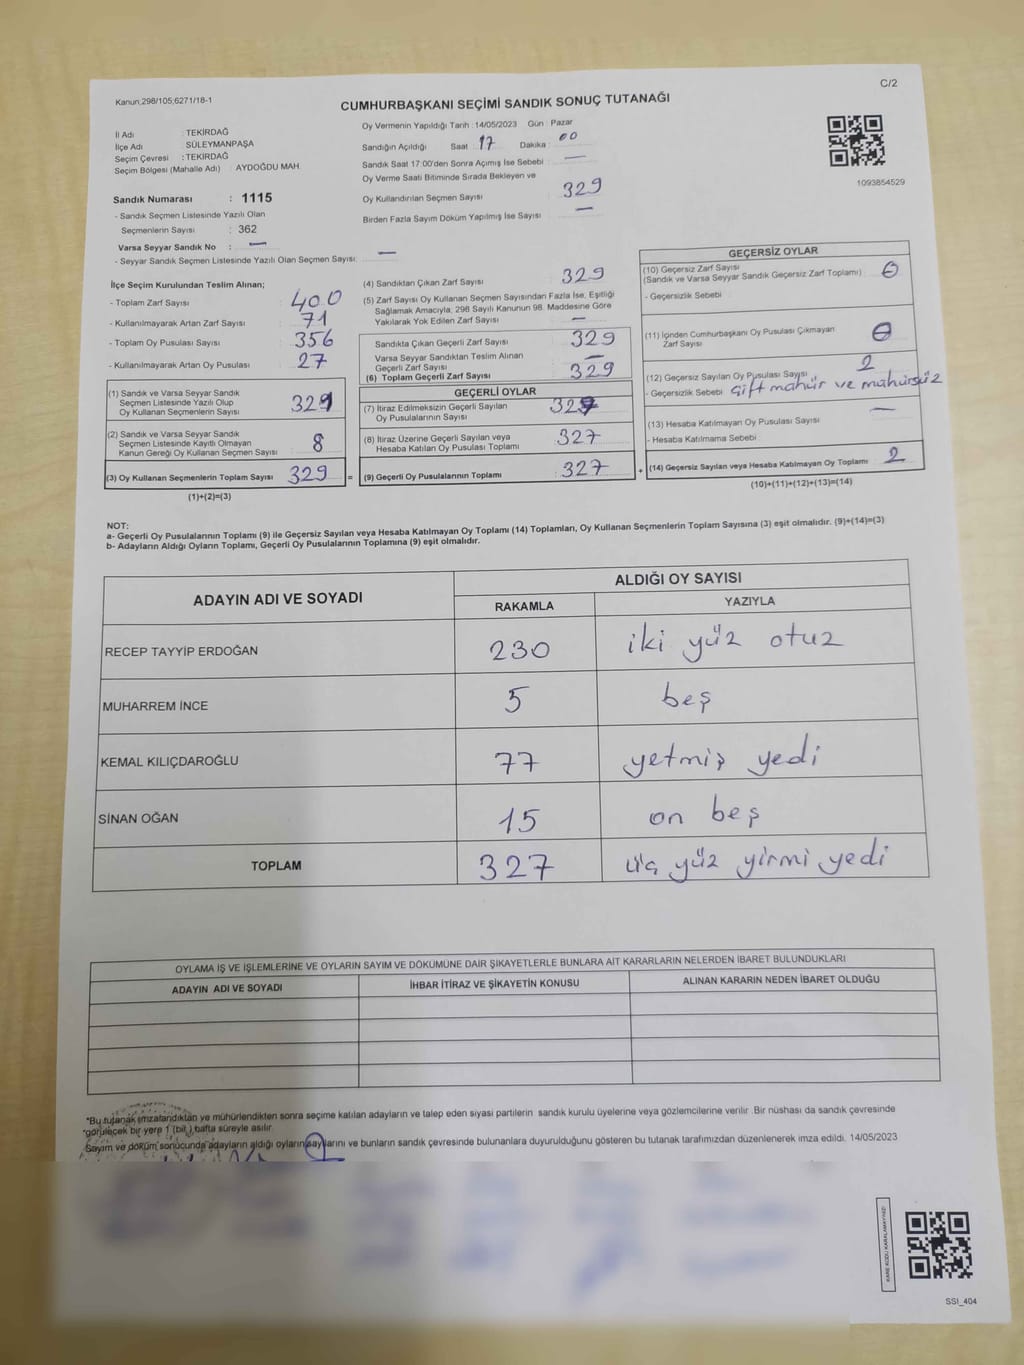 C/2
Kanun;298/105;6271/18-1
CUMHURBAŞKANI SEÇİMİ SANDIK SONUÇ TUTANAĞI
1093854529
İl Adı : TEKİRDAĞ
İlçe Adı : SÜLEYMANPAŞA
Seçim Çevresi : TEKİRDAĞ
Seçim Bölgesi (Mahalle Adı) : AYDOĞDU MAH.
Sandık Numarası : 1115
- Sandık Seçmen Listesinde Yazılı Olan
Seçmenlerin Sayısı : 362
Varsa Seyyar Sandık No : —
- Seyyar Sandık Seçmen Listesinde Yazılı Olan Seçmen Sayısı: —
Oy Vermenin Yapıldığı Tarih : 14/05/2023 Gün : Pazar
Sandığın Açıldığı Saat : 17 Dakika : 00
Sandık Saat 17:00'den Sonra Açılmış İse Sebebi : —
Oy Verme Saati Bitiminde Sırada Bekleyen ve
Oy Kullandırılan Seçmen Sayısı : 329
Birden Fazla Sayım Döküm Yapılmış İse Sayısı : —
İlçe Seçim Kurulundan Teslim Alınan;
- Toplam Zarf Sayısı : 400
- Kullanılmayarak Artan Zarf Sayısı : 71
- Toplam Oy Pusulası Sayısı : 356
- Kullanılmayarak Artan Oy Pusulası : 27
(1) Sandık ve Varsa Seyyar Sandık
Seçmen Listesinde Yazılı Olup
Oy Kullanan Seçmenlerin Sayısı : 321
(2) Sandık ve Varsa Seyyar Sandık
Seçmen Listesinde Kayıtlı Olmayan
Kanun Gereği Oy Kullanan Seçmen Sayısı : 8
(3) Oy Kullanan Seçmenlerin Toplam Sayısı : 329 =
(1)+(2)=(3)
(4) Sandıktan Çıkan Zarf Sayısı : 329
(5) Zarf Sayısı Oy Kullanan Seçmen Sayısından Fazla İse; Eşitliği
Sağlamak Amacıyla; 298 Sayılı Kanunun 98. Maddesine Göre
Yakılarak Yok Edilen Zarf Sayısı : —
Sandıkta Çıkan Geçerli Zarf Sayısı : 329
Varsa Seyyar Sandıktan Teslim Alınan
Geçerli Zarf Sayısı : —
(6) Toplam Geçerli Zarf Sayısı : 329
GEÇERLİ OYLAR
(7) İtiraz Edilmeksizin Geçerli Sayılan
Oy Pusulalarının Sayısı : 327
(8) İtiraz Üzerine Geçerli Sayılan veya
Hesaba Katılan Oy Pusulası Toplamı : 327
(9) Geçerli Oy Pusulalarının Toplamı : 327 +
GEÇERSİZ OYLAR
(10) Geçersiz Zarf Sayısı
(Sandık ve Varsa Seyyar Sandık Geçersiz Zarf Toplamı) : 0
- Geçersizlik Sebebi :
(11) İçinden Cumhurbaşkanı Oy Pusulası Çıkmayan
Zarf Sayısı : 0
(12) Geçersiz Sayılan Oy Pusulası Sayısı : 2
- Geçersizlik Sebebi : çift mühür ve mühürsüz
(13) Hesaba Katılmayan Oy Pusulası Sayısı : —
- Hesaba Katılmama Sebebi :
(14) Geçersiz Sayılan veya Hesaba Katılmayan Oy Toplamı : 2
(10)+(11)+(12)+(13)=(14)
NOT:
a- Geçerli Oy Pusulalarının Toplamı (9) ile Geçersiz Sayılan veya Hesaba Katılmayan Oy Toplamı (14) Toplamları, Oy Kullanan Seçmenlerin Toplam Sayısına (3) eşit olmalıdır. (9)+(14)=(3)
b- Adayların Aldığı Oyların Toplamı, Geçerli Oy Pusulalarının Toplamına (9) eşit olmalıdır.
ADAYIN ADI VE SOYADI ALDIĞI OY SAYISI
RAKAMLA YAZIYLA
RECEP TAYYİP ERDOĞAN 230 iki yüz otuz
MUHARREM İNCE 5 beş
KEMAL KILIÇDAROĞLU 77 yetmiş yedi
SİNAN OĞAN 15 on beş
TOPLAM 327 üç yüz yirmi yedi
OYLAMA İŞ VE İŞLEMLERİNE VE OYLARIN SAYIM VE DÖKÜMÜNE DAİR ŞİKAYETLERLE BUNLARA AİT KARARLARIN NELERDEN İBARET BULUNDUKLARI
ADAYIN ADI VE SOYADI İHBAR İTİRAZ VE ŞİKAYETİN KONUSU ALINAN KARARIN NEDEN İBARET OLDUĞU
*Bu tutanak imzalandıktan ve mühürlendikten sonra seçime katılan adayların ve talep eden siyasi partilerin sandık kurulu üyelerine veya gözlemcilerine verilir. Bir nüshası da sandık çevresinde
*görülecek bir yere 1 (bir) hafta süreyle asılır.
Sayım ve döküm sonucunda adayların aldığı oyların sayılarını ve bunların sandık çevresinde bulunanlara duyurulduğunu gösteren bu tutanak tarafımızdan düzenlenerek imza edildi. 14/05/2023
KARE KODU KARALAMAYINIZ!
SSI_404